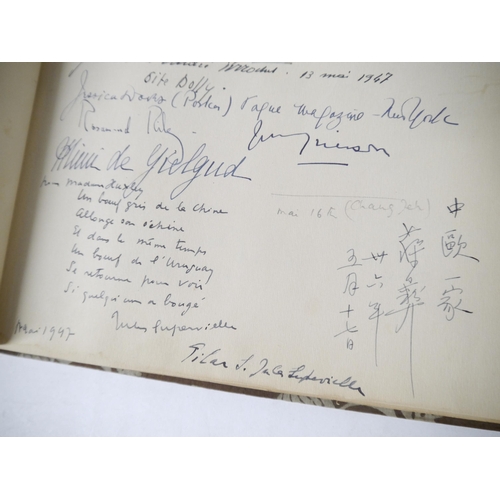 13 mai 1947
dite Dolly.
Jessica Davis (Porter) Vogue Magazine - New York
Rosamund
de Gielgud
pour madame Huxley
Un bœuf gris de la Chine
Allongé son échine
Et dans le même temps
Un bœuf de l'Uruguay
Se retourne pour voir
Si quelqu'un a bougé
Jules Supervielle
Mai 1947
Pilar S. Jules Supervielle
mai 16th (Chang Jeh)
中歐一家
蔣彝
廿六年
五月十七日